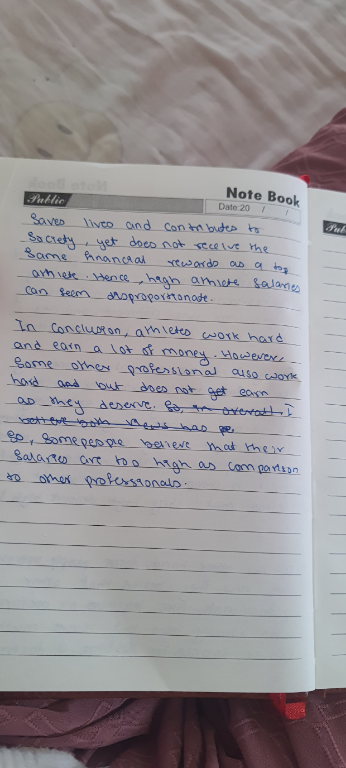 Note Book
Public
Date:20 / /
Saves lives and contributes to
Society, yet does not receive the
Same financial rewards as a top
athlete. Hence, high athlete Salaries
can seem disproportionate.
In conclusion, athletes work hard
and earn a lot of money. However
Some other professional also work
hard and but does not get earn
as they deserve. So, in overall, I
believe both views has pe
So, Some people believe that their
Salaries are too high as comparison
to other professionals.